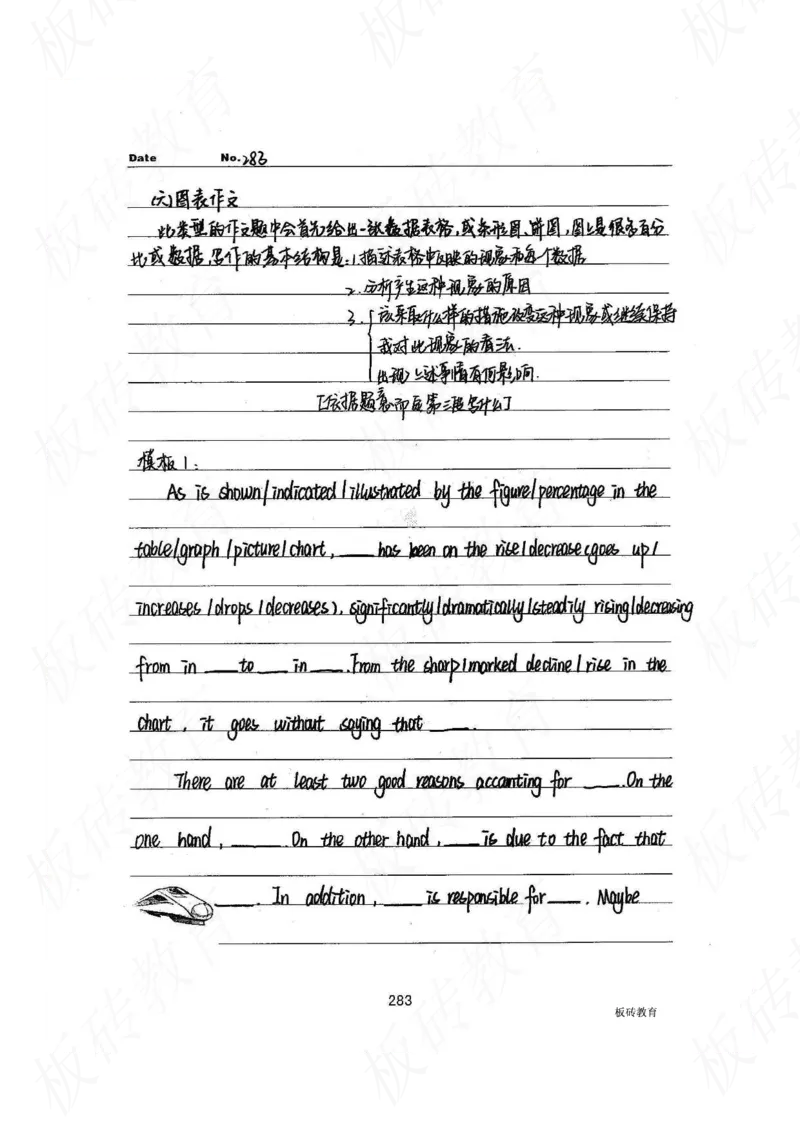 Date No.283
(六)图表作文
此类型的作文题中会首先给出一张数据表格,或条形图、饼图,图上是很多百分
比或数据,写作的基本结构是:1.描述表格中反映的现象和每个数据
2.分析产生这种现象的原因
3.该采取什么样的措施改变这种现象或继续保持
我对此现象的看法.
出现上述事情有何影响.
[依据题意而定第三段写什么]
模板1:
As is shown/indicated/illustrated by the figure/percentage in the
table/graph/picture/chart, ___ has been on the rise/decrease(goes up/
increases/drops/decreases), significantly/dramatically/steadily rising/decreasing
from in ___ to ___ in ___. From the sharp/marked decline/rise in the
chart, it goes without saying that ___.
There are at least two good reasons accounting for ___. On the
one hand, ___. On the other hand, ___ is due to the fact that
___. In addition, ___ is responsible for ___. Maybe
283
板砖教育
板砖教育